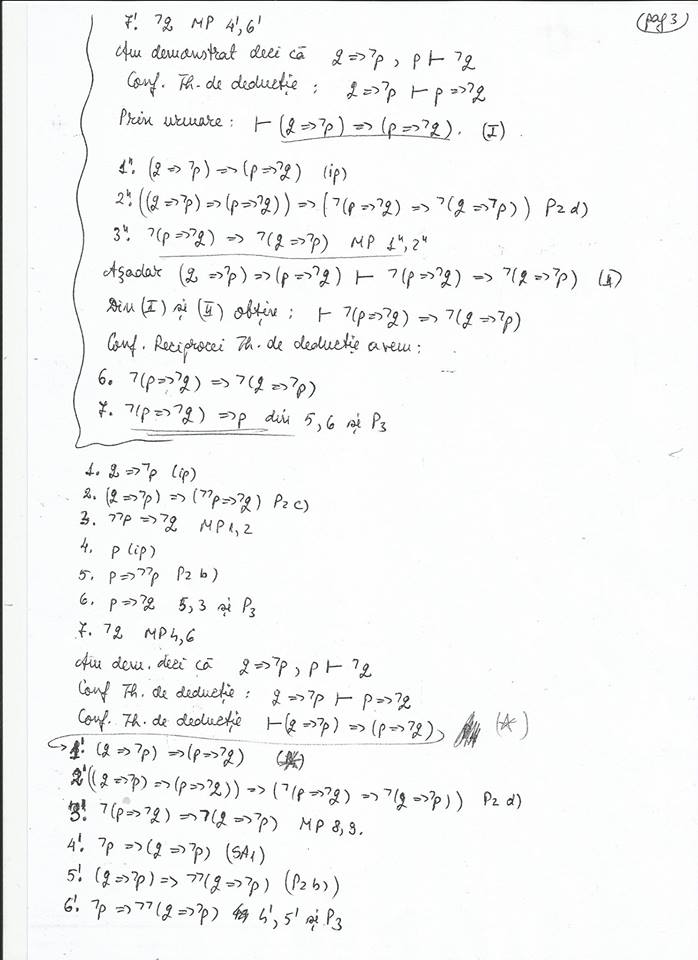 (pag 3)
7'. ⌝2 MP 4', 6'
Am demonstrat deci că 2=>⌝p, p ⊢ ⌝2
Conf. Th. de deducție : 2=>⌝p ⊢ p=>⌝2
Prin urmare : ⊢ (2=>⌝p) => (p=>⌝2). (I)
1". (2=>⌝p) => (p=>⌝2) (ip)
2". ((2=>⌝p) => (p=>⌝2)) => (⌝(p=>⌝2) => ⌝(2=>⌝p)) P2 d)
3". ⌝(p=>⌝2) => ⌝(2=>⌝p) MP 1", 2"
Așadar (2=>⌝p) => (p=>⌝2) ⊢ ⌝(p=>⌝2) => ⌝(2=>⌝p) (II)
Din (I) și (II) obțin : ⊢ ⌝(p=>⌝2) => ⌝(2=>⌝p)
Conf. Reciprocei Th. de deducție avem :
6. ⌝(p=>⌝2) => ⌝(2=>⌝p)
7. ⌝(p=>⌝2) => p din 5, 6 și P3
1. 2=>⌝p (ip)
2. (2=>⌝p) => (⌝⌝p=>⌝2) P2 c)
3. ⌝⌝p => ⌝2 MP 1, 2
4. p (ip)
5. p=>⌝⌝p P2 b)
6. p=>⌝2 5, 3 și P3
7. ⌝2 MP 4, 6
Am dem. deci că 2=>⌝p, p ⊢ ⌝2
Conf Th. de deducție : 2=>⌝p ⊢ p=>⌝2
Conf. Th. de deducție ⊢ (2=>⌝p) => (p=>⌝2) (☆)
1'. (2=>⌝p) => (p=>⌝2)
2' ((2=>⌝p) => (p=>⌝2)) => (⌝(p=>⌝2) => ⌝(2=>⌝p)) P2 d)
3'. ⌝(p=>⌝2) => ⌝(2=>⌝p) MP 8, 9.
4'. ⌝p => (2=>⌝p) (SA1)
5'. (2=>⌝p) => ⌝⌝(2=>⌝p) (P2 b))
6'. ⌝p => ⌝⌝(2=>⌝p) 4', 5' și P3